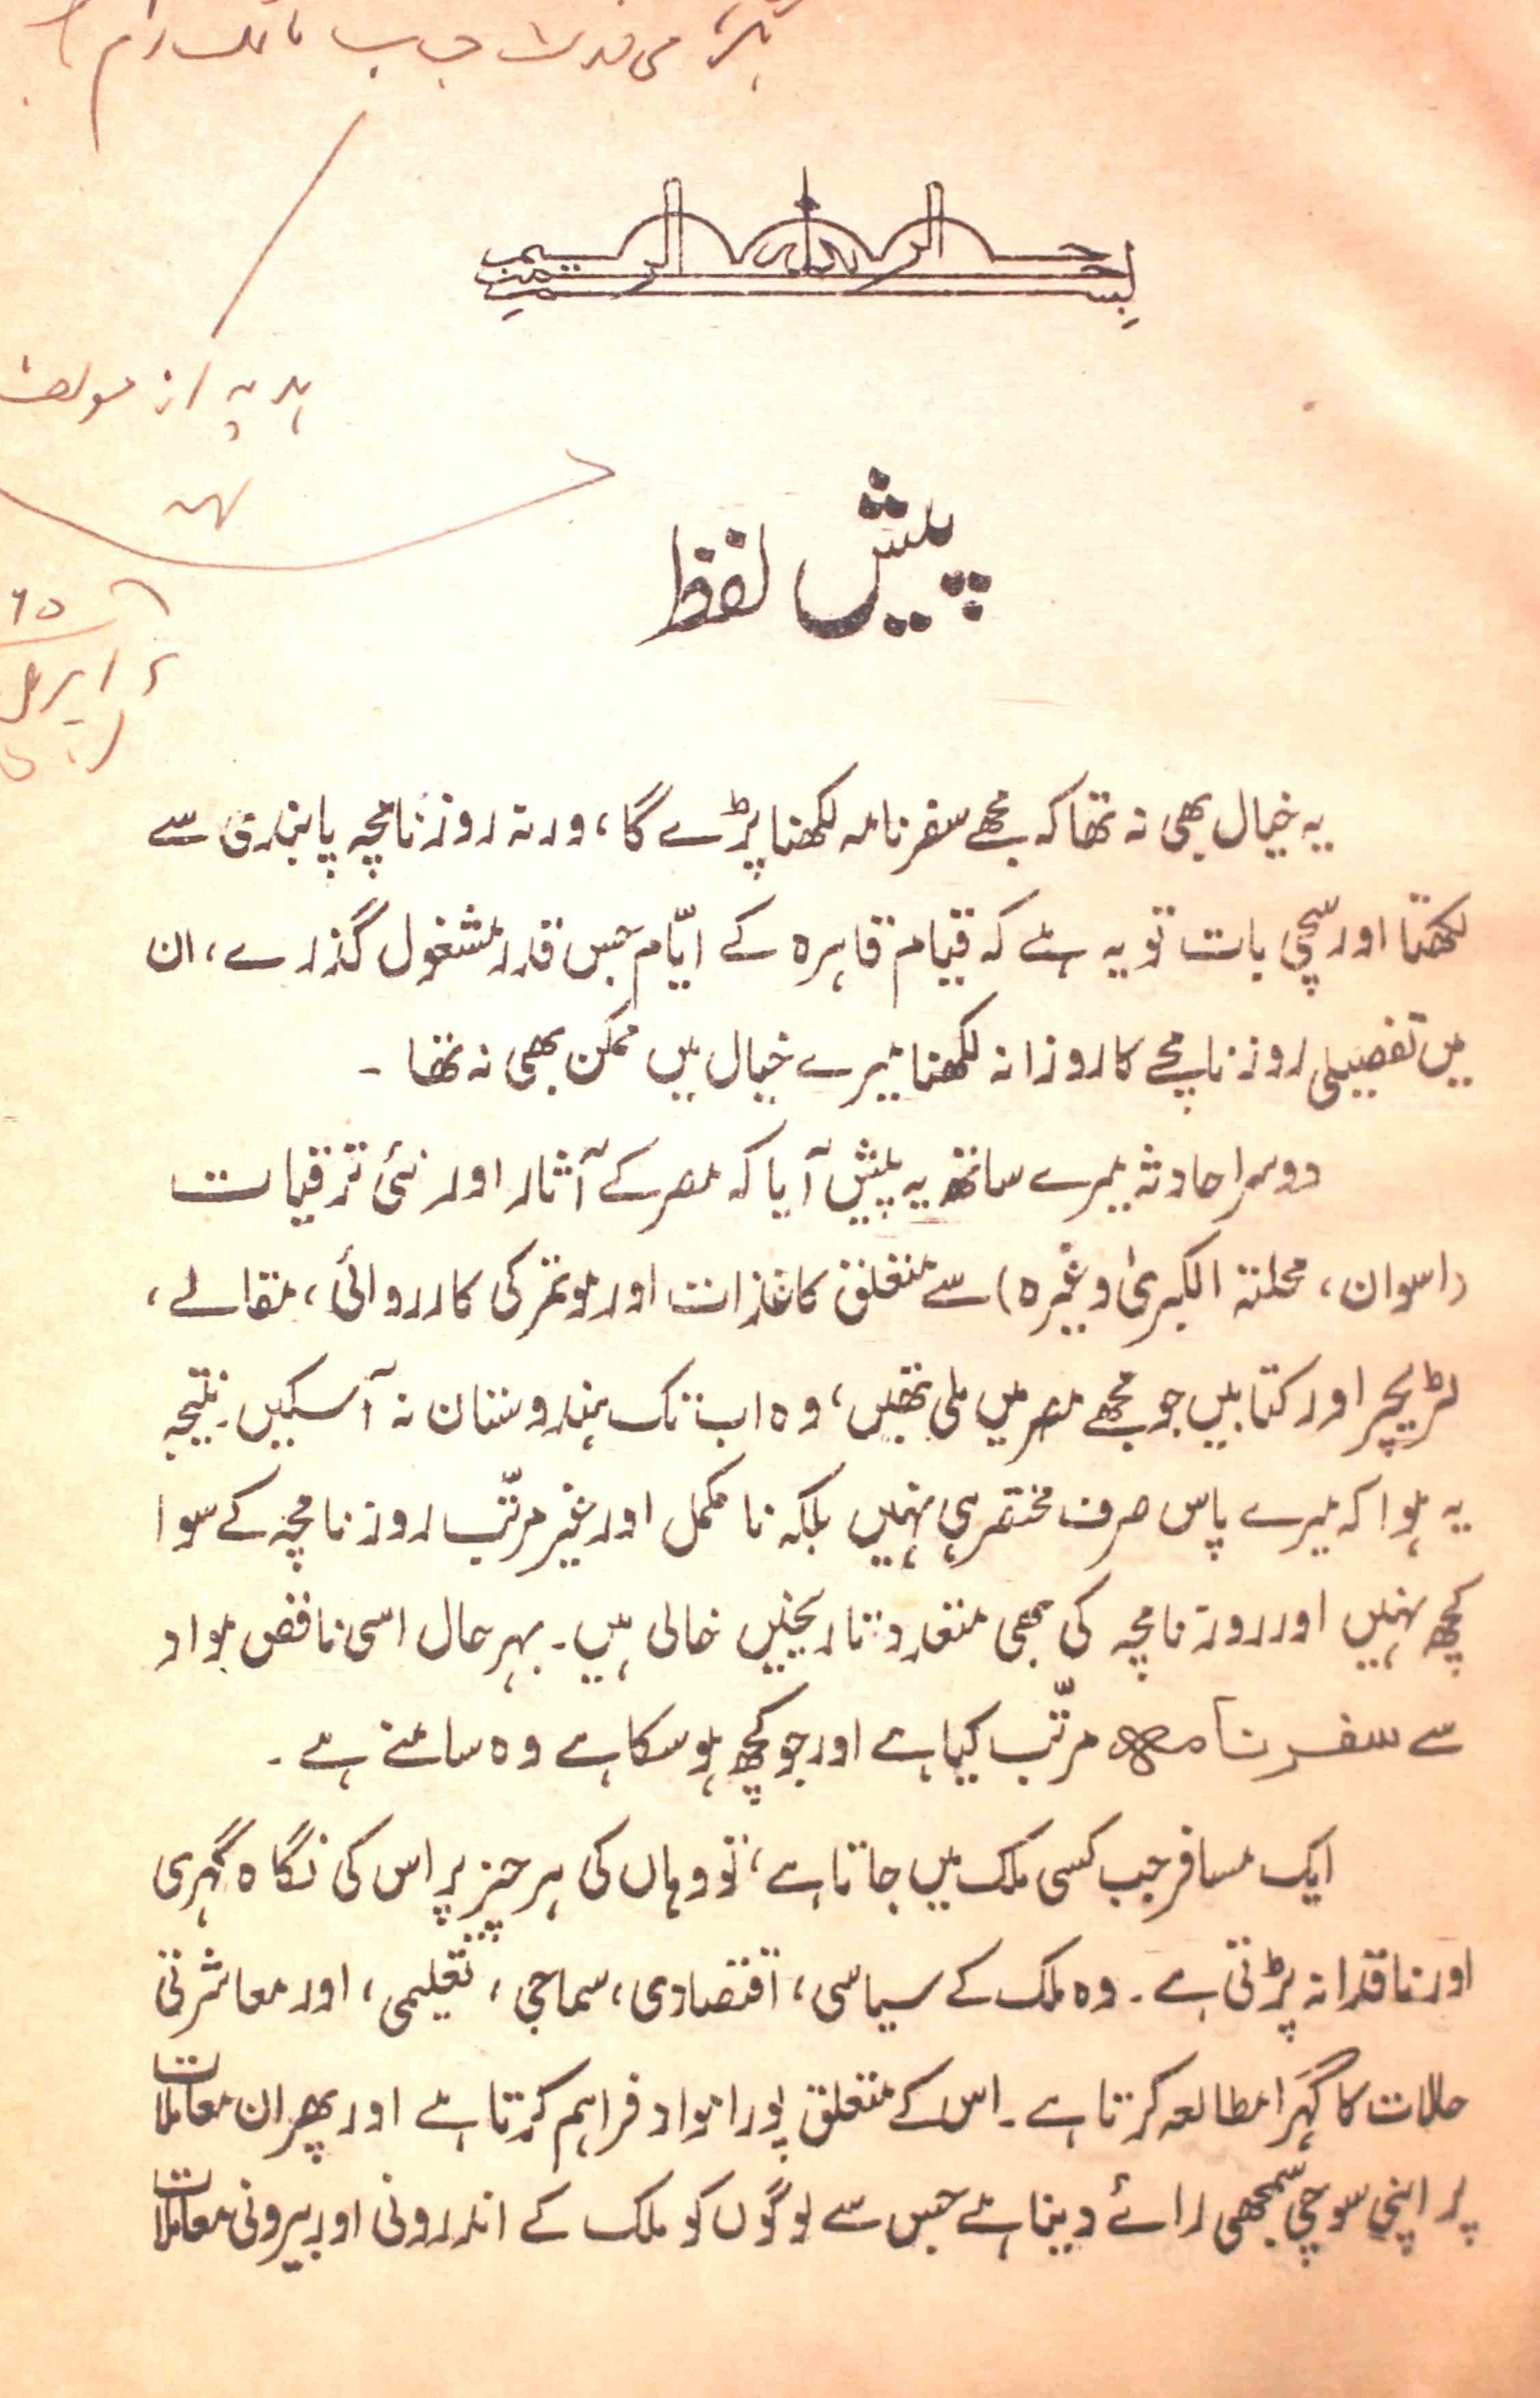 بسم اللہ الرحمن الرحیم
ہدیہ از مولف
پیش لفظ
۶۵
اپریل
یہ خیال بھی نہ تھا کہ مجھے سفرنامہ لکھنا پڑے گا، ورنہ روزنامچہ پابندی سے
لکھتا اور سچی بات تو یہ ہے کہ قیام قاہرہ کے ایّام جس قدر مشغول گذرے، ان
میں تفصیلی روزنامچے کا روزانہ لکھنا میرے خیال میں ممکن بھی نہ تھا ۔
دوسرا حادثہ میرے ساتھ یہ پیش آیا کہ مصر کے آثار اور نئی ترقیات
(اسوان، محلتہ الکبریٰ وغیرہ) سے متعلق کاغذات اور موتمر کی کارروائی، مقالے،
لٹریچر اور کتابیں جو مجھے مصر میں ملی تھیں، وہ اب تک ہندوستان نہ آسکیں۔ نتیجہ
یہ ہوا کہ میرے پاس صرف مختصر ہی نہیں بلکہ نامکمل اور غیر مرتّب روزنامچہ کے سوا
کچھ نہیں اور روزنامچہ کی بھی متعدد تاریخیں خالی ہیں۔ بہرحال اسی ناقص مواد
سے سفرنامہ مرتّب کیا ہے اور جو کچھ ہو سکا ہے وہ سامنے ہے ۔
ایک مسافر جب کسی ملک میں جاتا ہے، تو وہاں کی ہر چیز پر اس کی نگاہ گہری
اور ناقدانہ پڑتی ہے ۔ وہ ملک کے سیاسی، اقتصادی، سماجی، تعلیمی، اور معاشرتی
حالات کا گہرا مطالعہ کرتا ہے ۔ اس کے متعلق پورا مواد فراہم کرتا ہے اور پھر ان معاملات
پر اپنی سوچی سمجھی رائے دیتا ہے جس سے لوگوں کو ملک کے اندرونی اور بیرونی معاملات